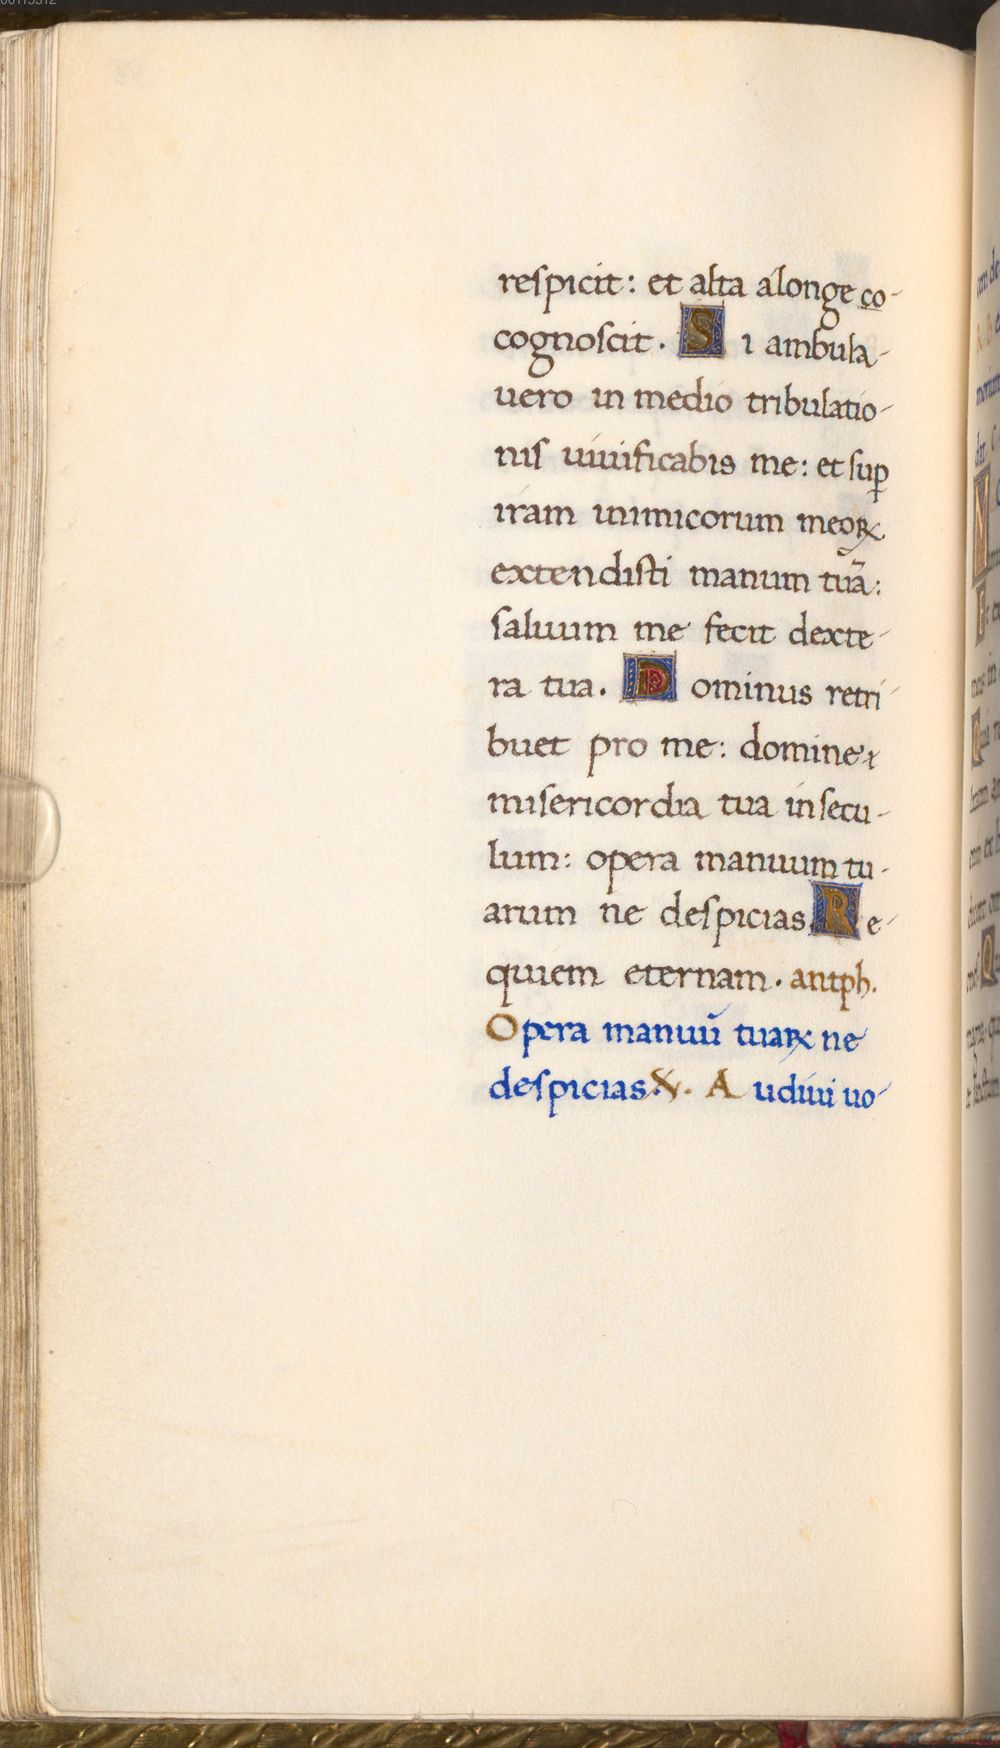 respicit: et alta alonge co-
cognoscit. Si ambula-
uero in medio tribulatio-
nis uiuificabis me: et sup̱
iram inimicorum meoꝝ
extendisti manum tuã:
saluum me fecit dexte-
ra tua. Dominus retri-
buet pro me: domine
misericordia tua in secu-
lum: opera manuum tu-
arum ne despicias Re-
quiem eternam. antph.
Opera manuũ tuaꝝ ne
despicias ℣. Audiui uo-